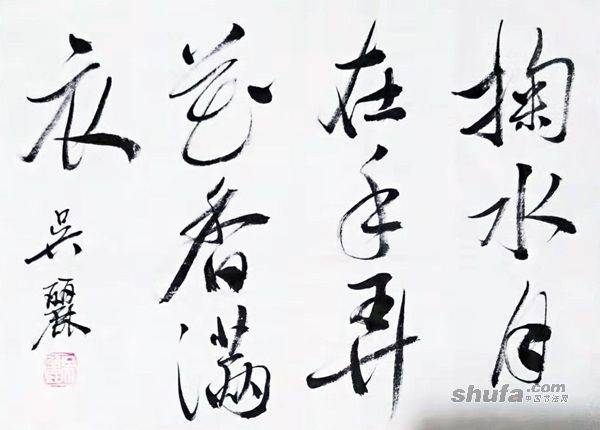 掬水月
在手弄
花香满
衣
吴麗
shufa.com
中国书法网